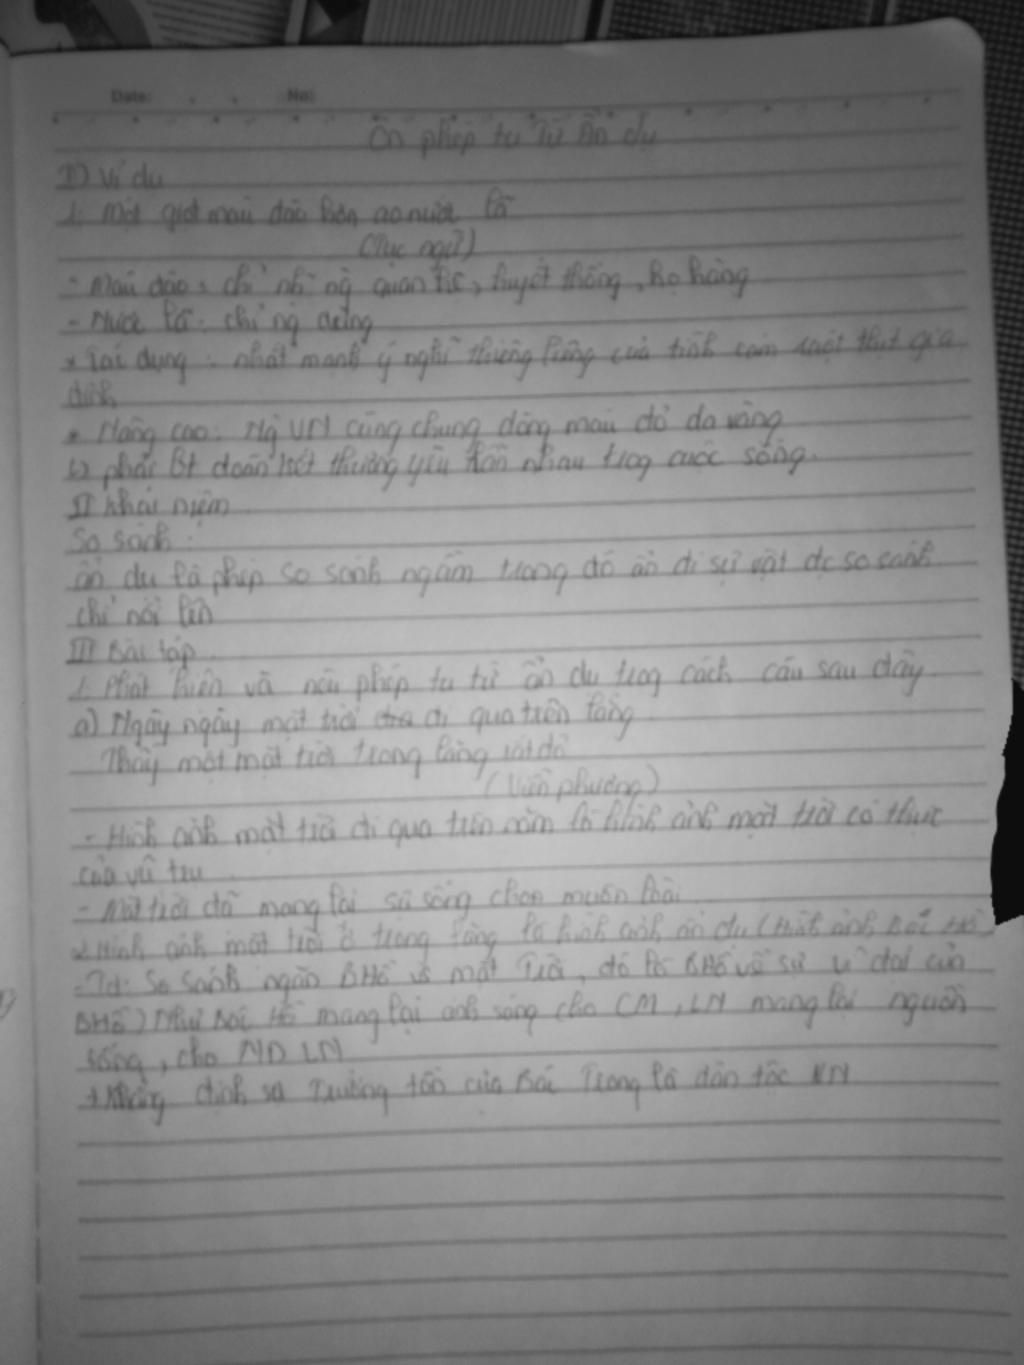 Date: No:
Ôn phép tu từ ẩn dụ
I) Ví dụ
1. Một giọt máu đào hơn ao nước lã
(Tục ngữ)
- Máu đào: chỉ những quan hệ, huyết thống, họ hàng
- Nước lã: chỉ ng dưng
* Tác dụng: nhất mạnh ý nghĩ thiêng liêng của tình cảm ruột thịt gia
đình
* Nâng cao: Ng VN cùng chung dòng máu đỏ da vàng
↳ phải Bt đoàn kết thương yêu lẫn nhau trog cuộc sống.
II Khái niệm
So sánh:
ẩn dụ là phép so sánh ngầm trong đó ẩn đi sự vật đc so sánh
chỉ nói lên
III Bài tập
1. Phát hiện và nêu phép tu từ ẩn dụ trog cách câu sau đây.
a) Ngày ngày mặt trời đi qua trên lăng
Thấy một mặt trời trong lăng rất đỏ
(Viễn phương)
- Hình ảnh mặt trời đi qua trên lăng là hình ảnh mặt trời có thực
của vũ trụ
- Mặt trời đã mang lại sự sống cho muôn loài.
* Hình ảnh mặt trời ở trong lăng là hình ảnh ẩn dụ (Hình ảnh Bác Hồ)
- Td: So sánh ngầm BHồ vs mặt Trời, đó là BHồ về sự vĩ đại của
BHồ) Như Bác Hồ mang lại ánh sáng cho CM, LN mang lại nguồn
sống, cho ND LN
+ Khẳng định sự Trường tồn của Bác Trong là dân tộc VN